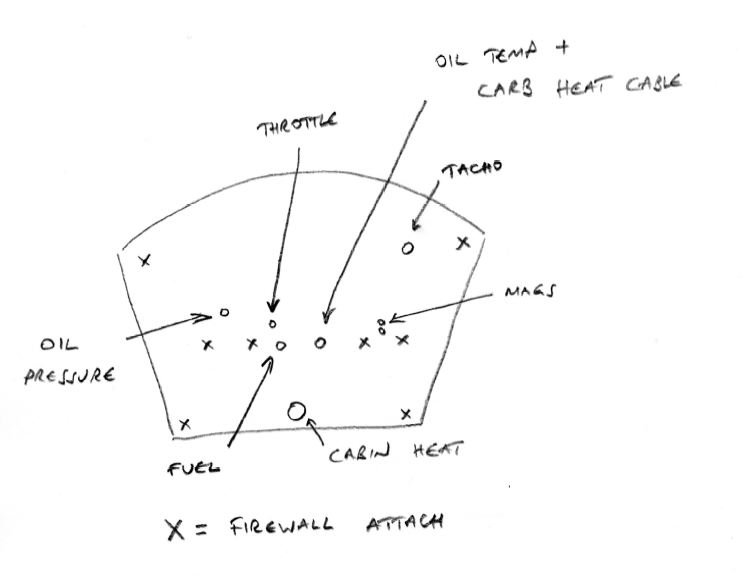 OIL TEMP +
CARB HEAT CABLE
THROTTLE
TACHO
MAGS
OIL
PRESSURE
CABIN HEAT
FUEL
X = FIREWALL ATTACH